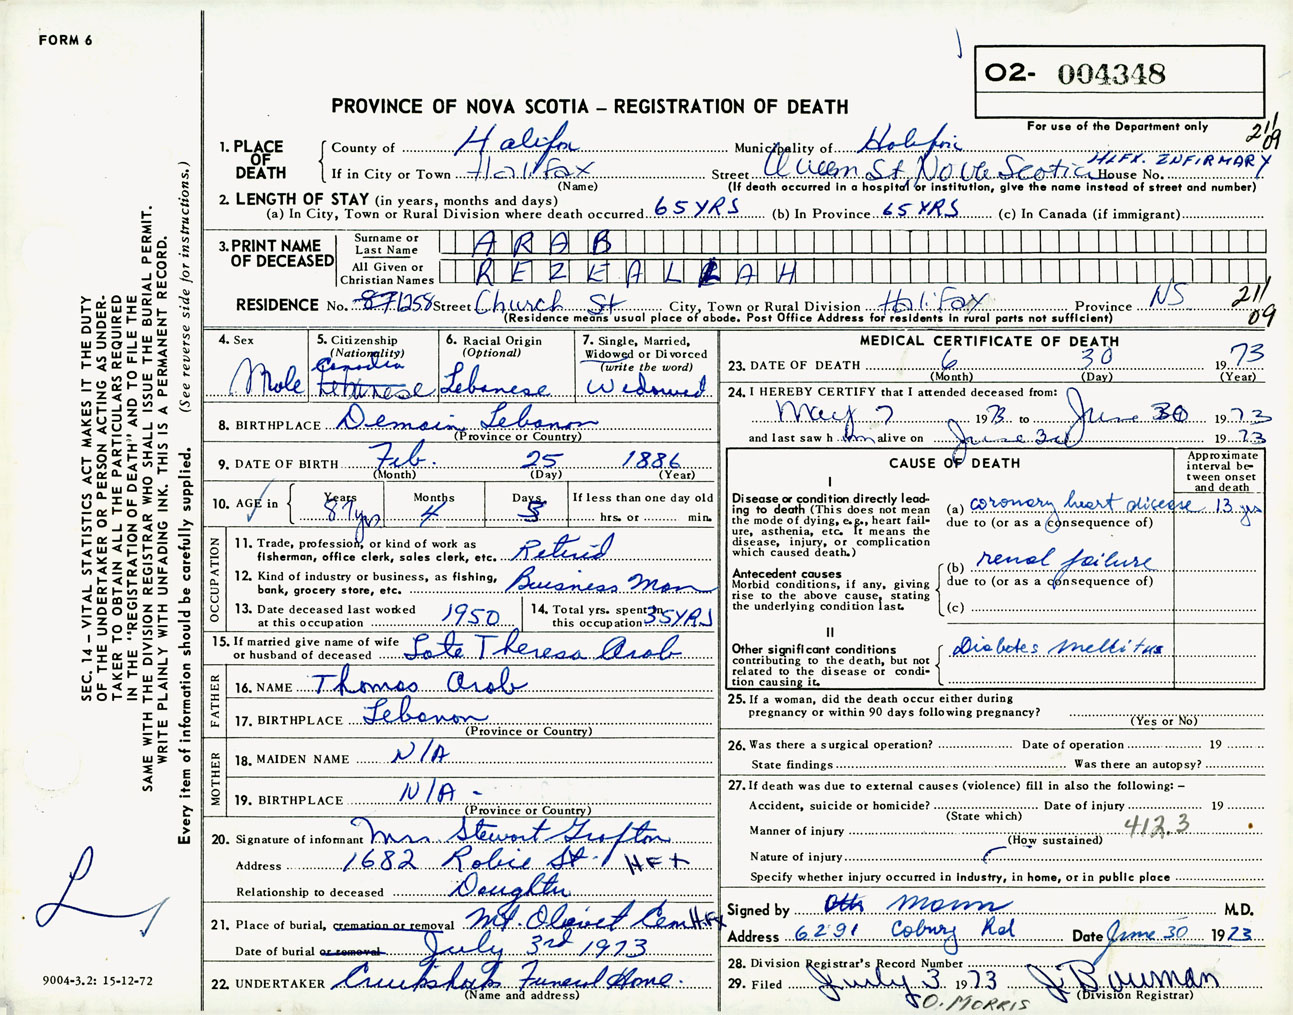 FORM 6
O2- 004348
PROVINCE OF NOVA SCOTIA – REGISTRATION OF DEATH
For use of the Department only
211
09
1. PLACE OF DEATH
County of Halifax Municipality of Halifax
If in City or Town Halifax Street Queen St Nova Scotia House No. HLFX. INFIRMARY
(Name) (If death occurred in a hospital or institution, give the name instead of street and number)
2. LENGTH OF STAY (in years, months and days)
(a) In City, Town or Rural Division where death occurred 65 YRS (b) In Province 65 YRS (c) In Canada (if immigrant)
3. PRINT NAME OF DECEASED
Surname or Last Name ARAB
All Given or Christian Names REZEALLAH
RESIDENCE No. 871258 Street Church St City, Town or Rural Division Halifax Province NS 211
(Residence means usual place of abode. Post Office Address for residents in rural parts not sufficient) 09
4. Sex Male
5. Citizenship (Nationality) Canadian
6. Racial Origin (Optional) Lebanese
7. Single, Married, Widowed or Divorced (write the word) Widowed
8. BIRTHPLACE Lebanon
(Province or Country)
9. DATE OF BIRTH Feb. 25 1886
(Month) (Day) (Year)
10. AGE in Years 87 yrs Months 4 Days 5 If less than one day old hrs. or min.
OCCUPATION
11. Trade, profession, or kind of work as fisherman, office clerk, sales clerk, etc. Retired
12. Kind of industry or business, as fishing, bank, grocery store, etc. Business Man
13. Date deceased last worked at this occupation 1950
14. Total yrs. spent in this occupation 35 YRS
15. If married give name of wife or husband of deceased Late Theresa Arab
FATHER
16. NAME Thomas Arab
17. BIRTHPLACE Lebanon
(Province or Country)
MOTHER
18. MAIDEN NAME N/A
19. BIRTHPLACE N/A -
(Province or Country)
20. Signature of informant Mrs Stewart Grafton
Address 1682 Robie St. HFX
Relationship to deceased Daughter
21. Place of burial, cremation or removal Mt Olivet Cem HFx
Date of burial or removal July 3rd 1973
22. UNDERTAKER Cruikshanks Funeral Home.
(Name and address)
MEDICAL CERTIFICATE OF DEATH
23. DATE OF DEATH 6 30 1973
(Month) (Day) (Year)
24. I HEREBY CERTIFY that I attended deceased from:
May 7 1973 to June 30 1973
and last saw him alive on June 30 1973
CAUSE OF DEATH
Approximate interval between onset and death
I
Disease or condition directly leading to death (This does not mean the mode of dying, e.g., heart failure, asthenia, etc. It means the disease, injury, or complication which caused death.)
(a) coronary heart disease 13 yrs
due to (or as a consequence of)
Antecedent causes
Morbid conditions, if any, giving rise to the above cause, stating the underlying condition last.
(b) renal failure
due to (or as a consequence of)
(c)
II
Other significant conditions contributing to the death, but not related to the disease or condition causing it.
Diabetes mellitus
25. If a woman, did the death occur either during pregnancy or within 90 days following pregnancy?
(Yes or No)
26. Was there a surgical operation? Date of operation 19
State findings Was there an autopsy?
27. If death was due to external causes (violence) fill in also the following: –
Accident, suicide or homicide? Date of injury 19
(State which)
412.3
Manner of injury
(How sustained)
Nature of injury
Specify whether injury occurred in industry, in home, or in public place
Signed by Mann M.D.
Address 6291 Coburg Rd Date June 30 1973
28. Division Registrar's Record Number
29. Filed July 3 1973 J Bowman
(Division Registrar)
O. MORRIS
SEC. 14 – VITAL STATISTICS ACT MAKES IT THE DUTY
OF THE UNDERTAKER OR PERSON ACTING AS UNDER-
TAKER TO OBTAIN ALL THE PARTICULARS REQUIRED
IN THE "REGISTRATION OF DEATH" AND TO FILE THE
SAME WITH THE DIVISION REGISTRAR WHO SHALL ISSUE THE BURIAL PERMIT.
WRITE PLAINLY WITH UNFADING INK. THIS IS A PERMANENT RECORD.
Every item of information should be carefully supplied. (See reverse side for instructions.)
9004-3.2: 15-12-72